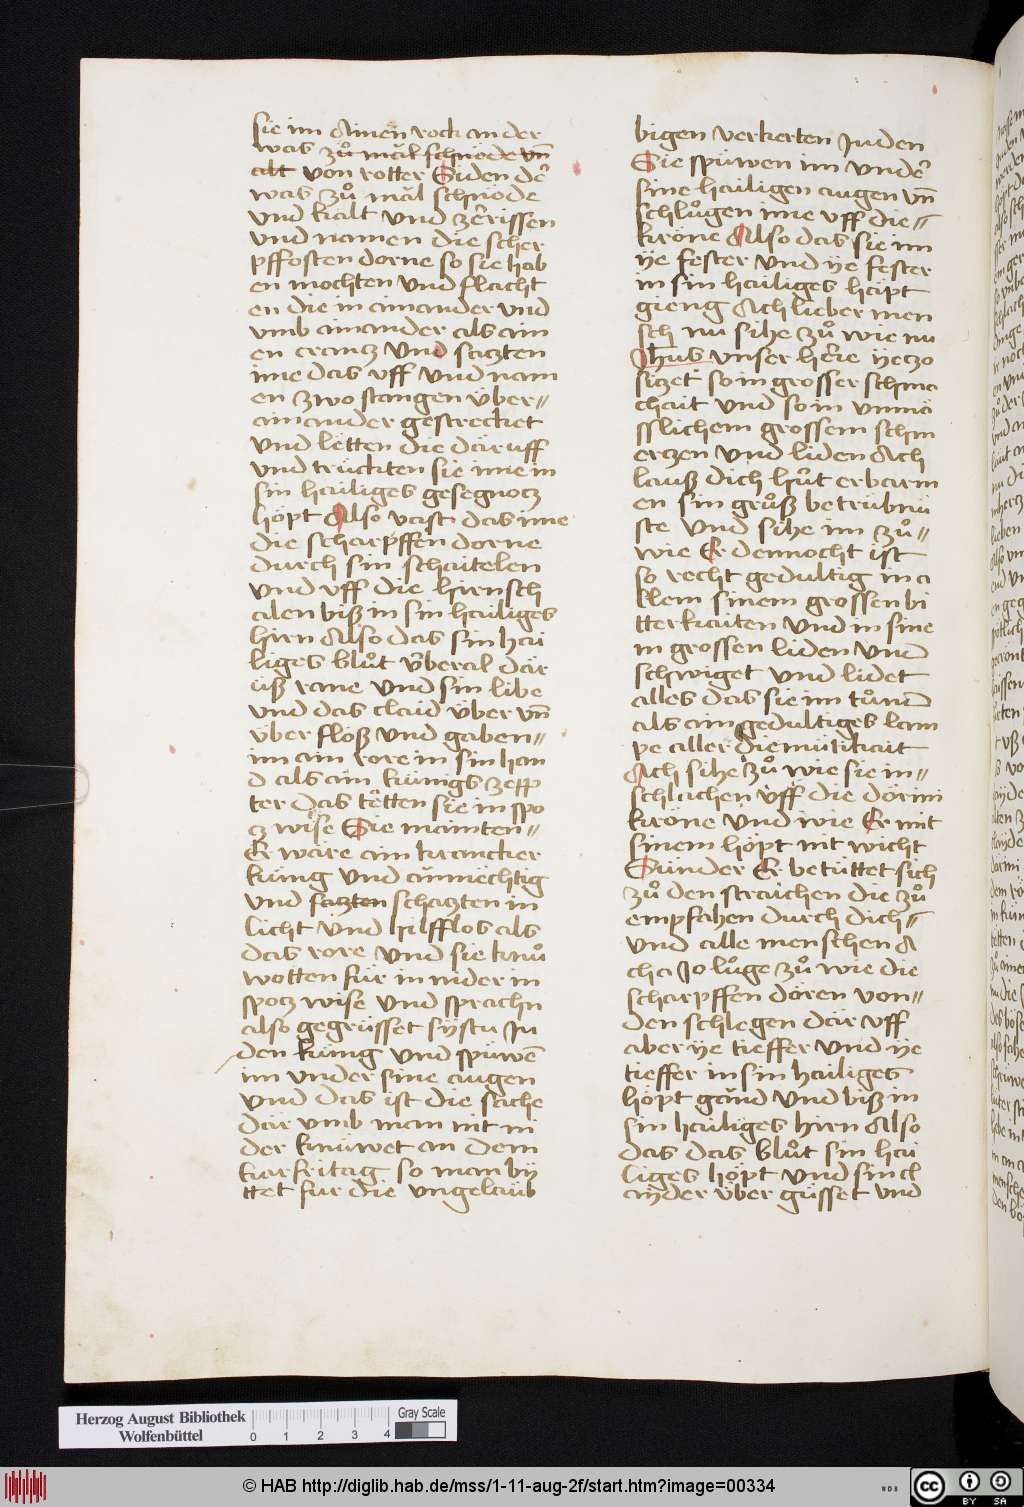 sie im Ainen rock an der
was zuͦ mal schnöde vn̄
alt von rotter Siden der
was zuͦ mal schnöde
vnd kalt vnd zerissen
vnd namen die scher
pffosten dorne so sie hab
en mochten vnd flacht
en die in ainander vnd
vmb ainander als ain
en crancz vnd saczten
ime das vff vnd nam
en zwo stangen über„
ainander gestrecket
vnd letten die däruff
vnd truckten sie ime in
sin hailiges gesegnocz
höpt Also vast das ime
die scharpffen dorne
durch sin schaitelen
vnd vff die hirn sch
alen biß in sin hailiges
hirn Also das sin hai
liges bluͦt v̈beral där
üß rane vnd sin libe
vnd das claid über vn̄
über floß vnd gaben„
im ain rore in sin han
d als ain künigs zepp
ter das tetten sie in spo
cz wise Sie mainten„
Er wäre ain krancker
künig vnd ainmechtig
vnd saczten schaczten in
licht vnd hilfflos als
das rore vnd sie knuͦ
wotten für in nider in
spocz wise vnd sprachn
also gegrüsset systu Ju
den künig vnd spüwē
im vnder sine augen
vnd das ist die sache
där vmb man nit ni
der knüwet an dem
karfritag so man bÿ
ttet für die vngelaub
bigen verkerten Juden
Sie spüwen im vnder
sine hailigen augen vn̄
schluͦgen ime vff die„
kröne Also das sie im
ÿe fester vnd ÿe fester
in sin hailiges häpt
gieng Ach lieber men
sch nu sihe zuͦ wie nu
Jhus vnser here ÿeczo
siczet so in grosser schma
chait vnd so in vnmä
sslichem grossem schm
erczen vnd liden Ach
lauß dich huͦt erbarm
en sin gruͦß betrübnü
ste vnd sihe im zuͦ„
wie Er dennocht ist
so recht gedultig in a
klem sinem grossen bi
tterkaiten vnd in sine
m grossen liden vnd
schwiget vnd lidet
alles das sie im tuͦnd
als ain gedultiges lam
pe aller diemütikait
Ach sihe zuͦ wie sie in„
schlachen v̈ff die dörini
krone vnd wie Er mit
sinem höpt nit wicht
Sünder Er betüttet sich
zuͦ den straichen die zuͦ
empfahen durch dich„
vnd alle menschen A
cha Jo luͦge zuͦ wie die
scharpffen dören von„
den schlegen där vff
aber ÿe tieffer vnd ÿe
tieffer in sin hailiges
höpt gänd vnd biß in
sin hailiges hirn Also
das das bluͦt sin hai
liges höpt vnd sin cl
aÿder über güsset vnd
Herzog August Bibliothek
Wolfenbüttel
0 1 2 3 4
Gray Scale
© HAB http://diglib.hab.de/mss/1-11-aug-2f/start.htm?image=00334
WDB
cc BY SA